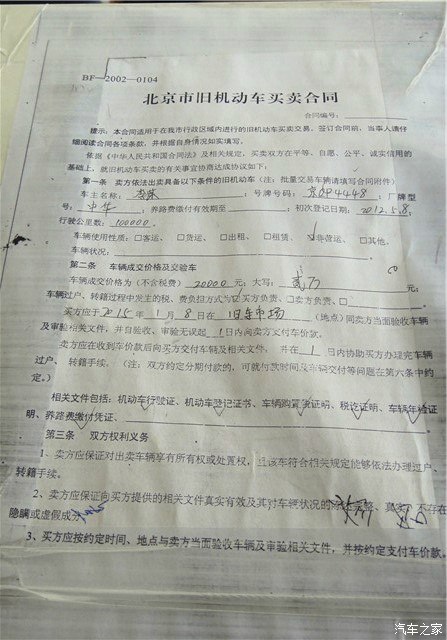 BF—2002—0104
北京市旧机动车买卖合同
合同编号:
提示:本合同适用于在我市行政区域内进行的旧机动车买卖交易。签订合同前,当事人请仔
细阅读合同各项条款,根据自身情况如实填写。
依据《中华人民共和国合同法》及相关规定,买卖双方在平等、自愿、公平、诚实信用的
基础上,就旧机动车买卖的有关事宜协商达成协议如下:
第一条 卖方依法出卖具备以下条件的旧机动车(注:批量交易车辆请填写合同附件)
车主名称: ;号牌号码:京 4448;厂牌型
号:中华;养路费缴付有效期至 ;初次登记日期:2012.5.8.
行驶公里数:100000.
车辆使用性质:□客运、 □货运、 □出租、 □租赁、 √非营运、 □其他。
车辆状况:
第二条 车辆成交价格及交验车
车辆成交价格为(不含税费)20000元;大写:贰万元;
车辆过户、转籍过程中发生的税、费负担方式为☑买方负责、□卖方负责、□
买方应于2015年1月8日在旧车市场(地点)同卖方当面验收车辆
及审验相关文件,并自验收、审验无误起1日内向卖方支付车价款。
卖方应在收到车价款后向买方交付车辆及相关文件,并在1日内协助买方办理完车辆
过户、转籍手续。(注:双方约定分期付款的,可就付款时间及车辆交付等问题在第六条中约
定。)
相关文件包括:机动车行驶证、机动车登记证书、车辆购置费证明、税讫证明、车辆年检证
明、养路费缴付凭证、
第三条 双方权利义务
1、卖方应保证对出卖车辆享有所有权或处置权,且该车符合相关规定能够依法办理过户、
转籍手续。
2、卖方应保证向买方提供的相关文件真实有效及其对车辆状况的 完整、真实,不存在
隐瞒或虚假成分
3、买方应按约定时间、地点与卖方当面验收车辆及审验相关文件,并按约定支付车价款。
汽车之家